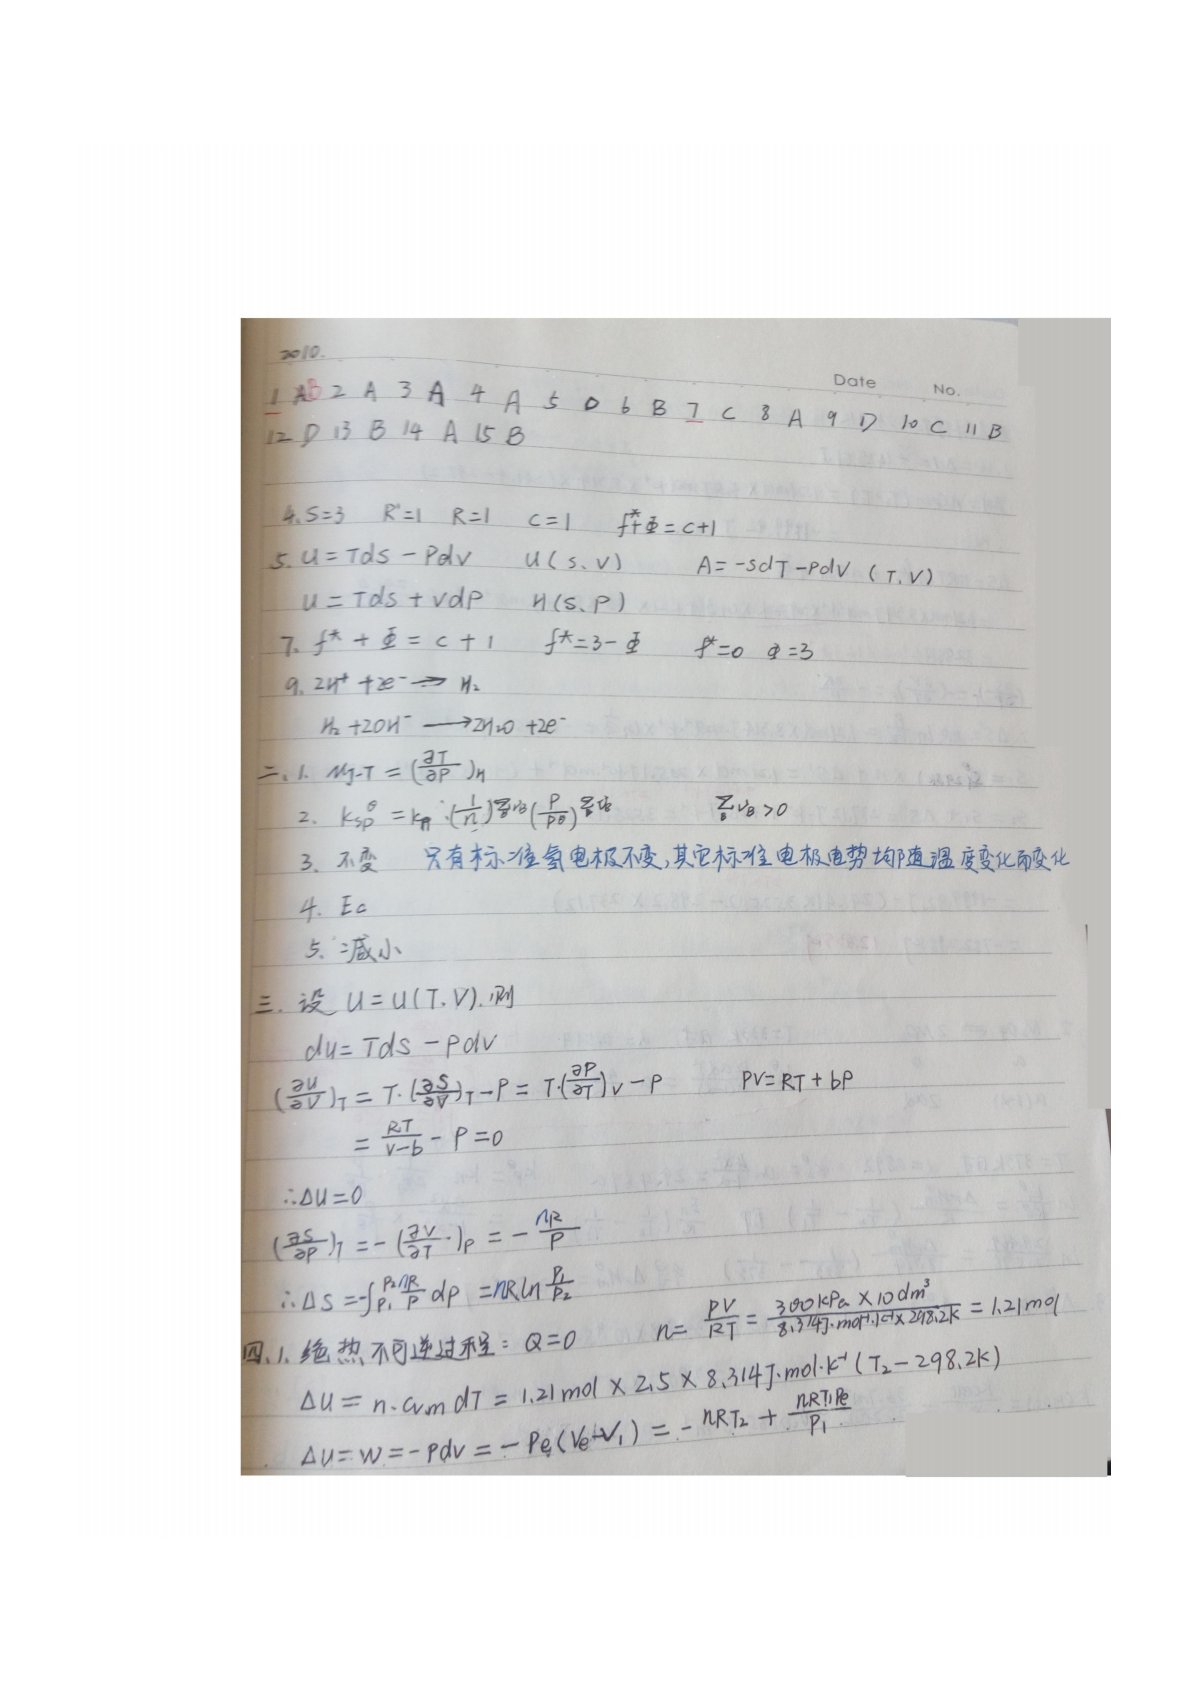 2010.
Date No.
1 A B 2 A 3 A 4 A 5 D 6 B 7 C 8 A 9 D 10 C 11 B
12 D 13 B 14 A 15 B
4. S=3 R'=1 R=1 C=1 f*+Φ=C+1
5. U=Tds-Pdv U(S、V) A=-SdT-PdV (T,V)
U=Tds+vdP H(S、P)
7. f*+Φ=C+1 f*=3-Φ f*=0 Φ=3
9. 2H⁺+2e⁻→H₂
H₂+2OH⁻→2H₂O+2e⁻
二、1. μJ-T=(∂T/∂P)H
2. (1/n)^ΣνB (P/Pθ)^ΣνB ΣνB>0
3. 不变 只有标准氢电极不变,其它标准电极电势均随温度变化而变化
4. Ec
5. 减小
三. 设 U=U(T.V).则
du=Tds-Pdv
(∂U/∂V)T=T·(∂S/∂V)T-P=T·(∂P/∂T)V-P PV=RT+bP
=RT/(V-b)-P=0
∴ΔU=0
(∂S/∂P)T=-(∂V/∂T)P=-nR/P
∴ΔS=-∫P₁^P₂ nR/P dp=nRln P₁/P₂
四.1.绝热不可逆过程: Q=0 n=PV/RT=300kPa×10dm³/8.314J·mol⁻¹·K⁻¹×298.2K=1.21mol
ΔU=n.Cv,m dT=1.21mol×2.5×8.314J·mol·K⁻¹(T₂-298.2K)
ΔU=W=-Pdv=-Pe(Ve-V₁)=-nRT₂+nRT₁Pe/P₁